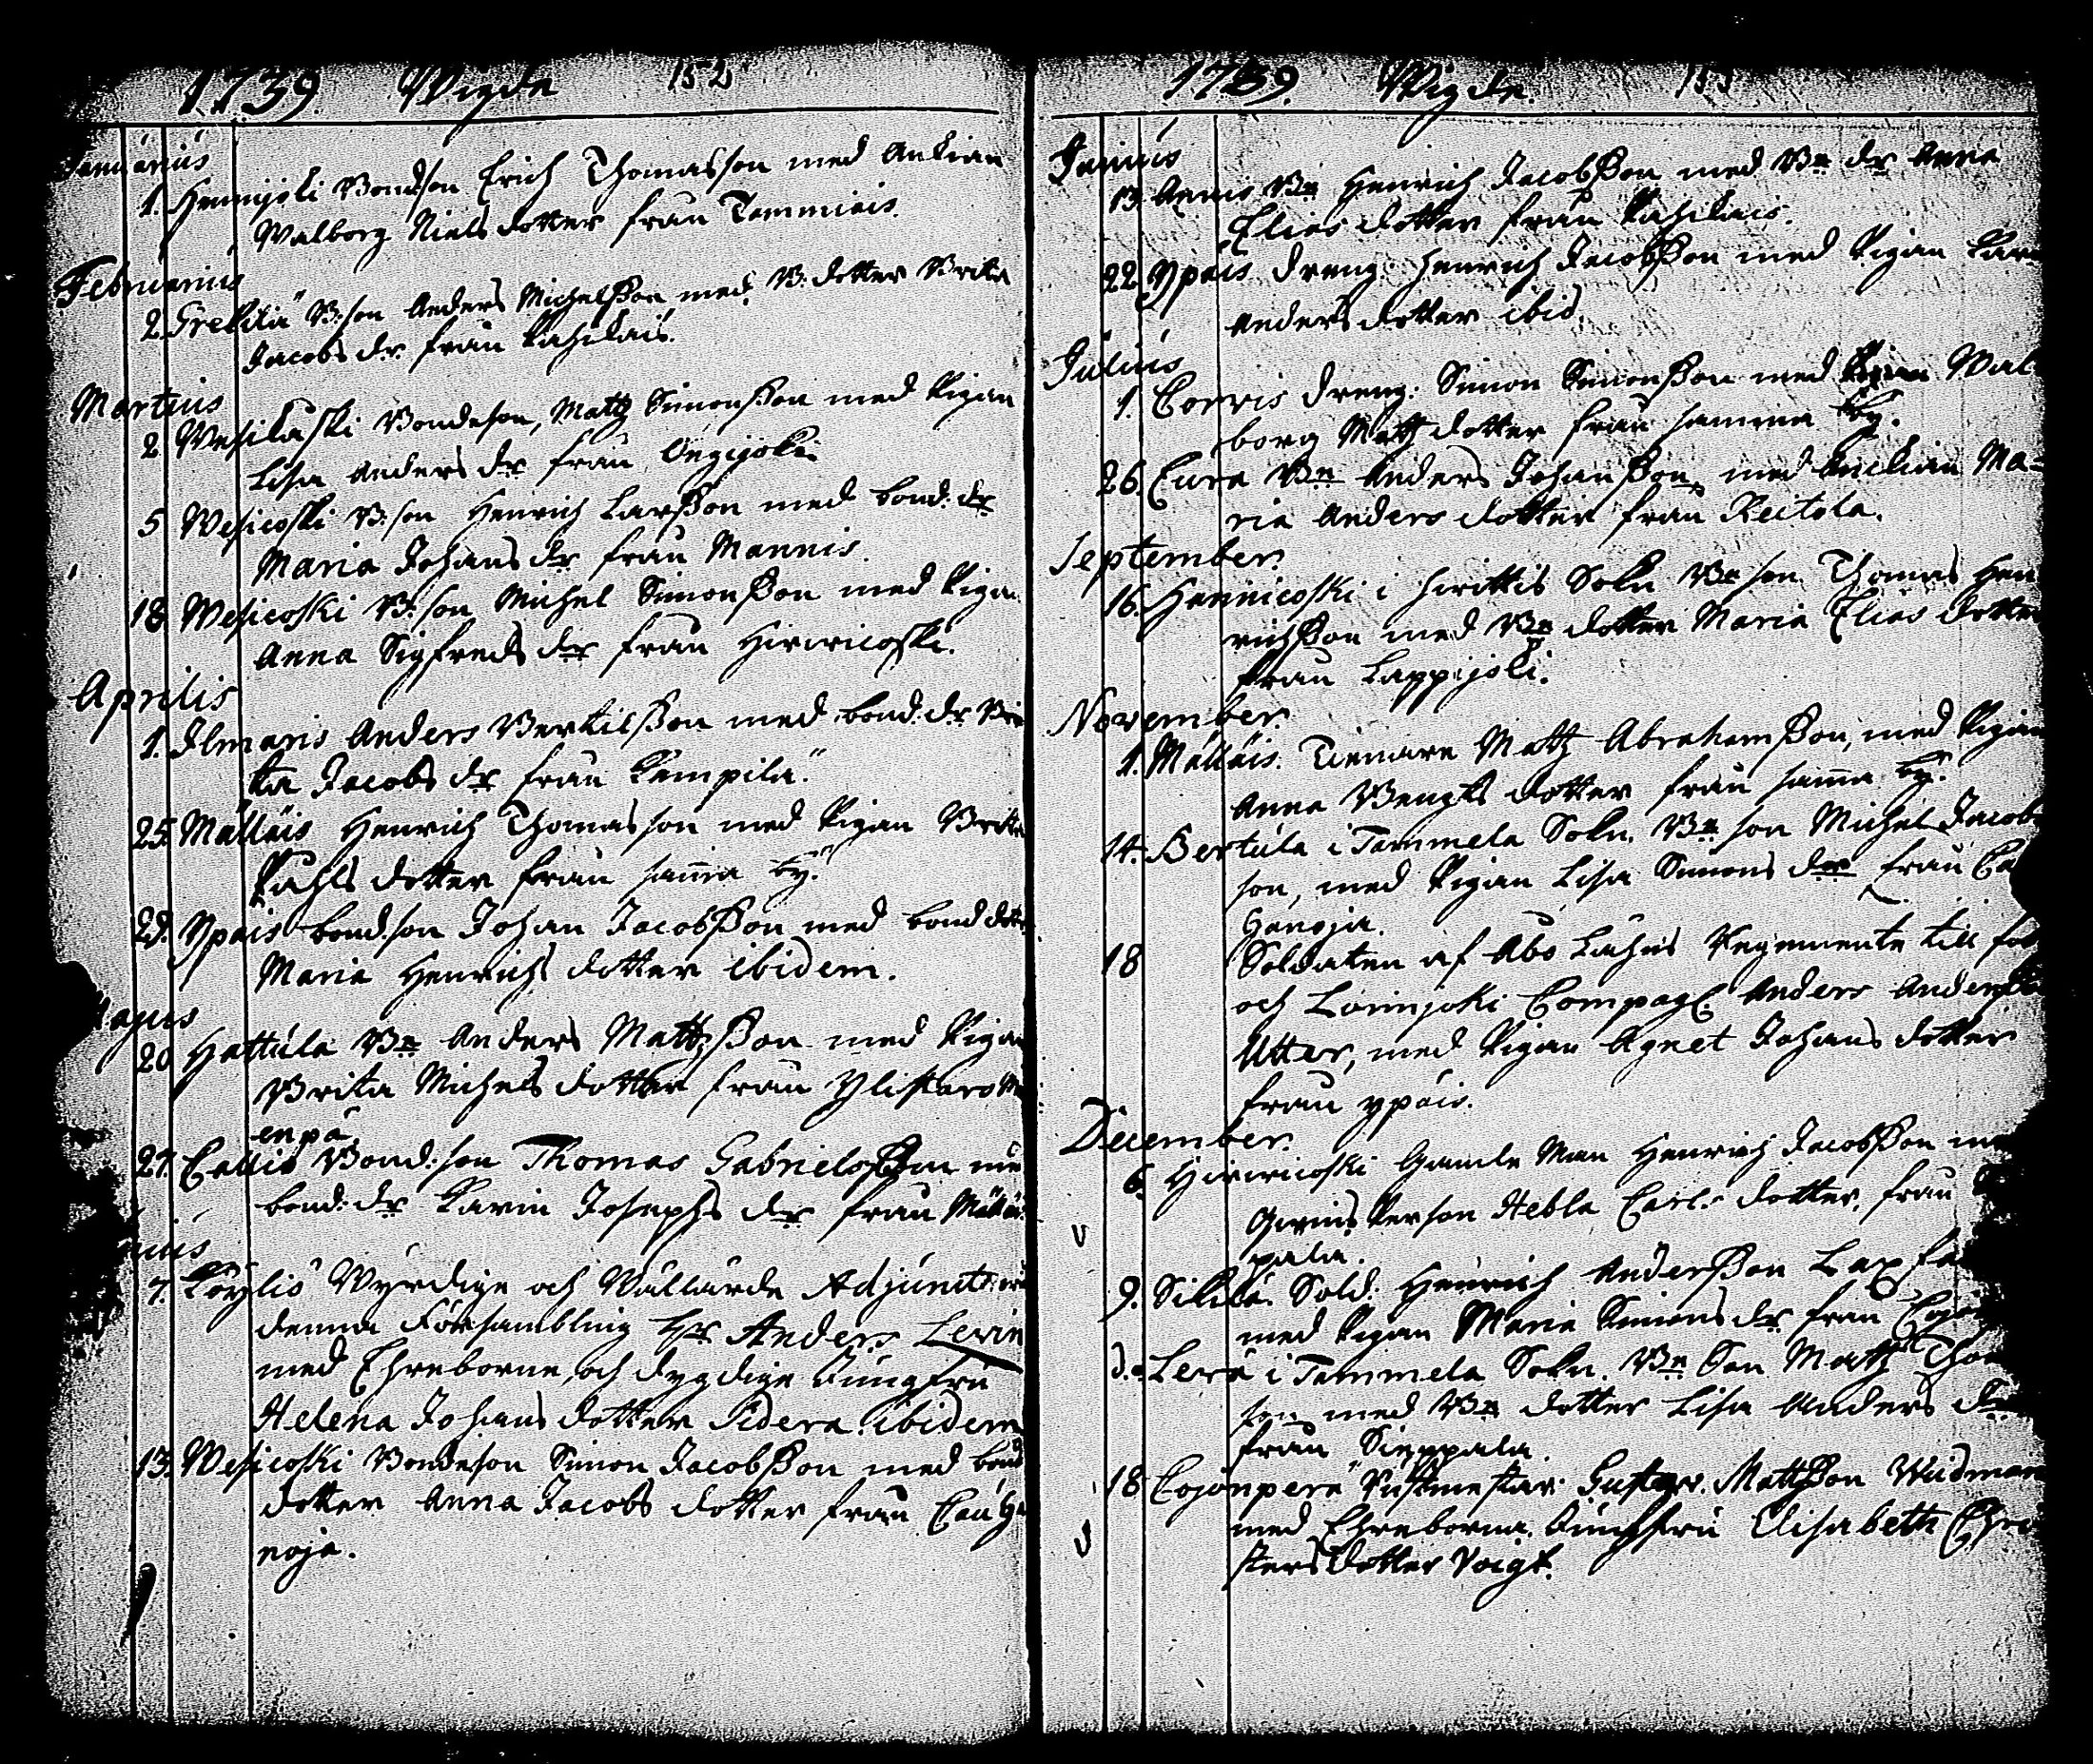 1739 Wigde 152
Januarius
1. Hennijoki Bondson Erich Thomasson med Ankian
Walborg Nielsdotter från Tammiais.
Februarius
2. Prekilä B:son Anders Michelsson med B:dotter Brita
Jacobs dr från Raskikais.
Martius
2 Wesikoski Bondeson, Matts Simonsson med Pigan
Lisa Anders dr från
5 Wesicoski B:son Henrich Larsson med bond: dr
Maria Johans dr från Mannis.
18 Wesicoski B:son Michel Simonsson med Pigan
Anna Sigfreds dr från Hirwicoski.
Aprilis
1. Ilmaris Anders Bertilsson med bond: dr Bri
ta Jacobs dr från Kempilä.
25. Mälläis Henrich Thomasson med Pigan Brita
Påhls dotter från samma by.
29. Ypäis bond.son Johan Jacobsson med bond dotter
Maria Henrichs dotter ibidem.
20 Hattula Bn Anders Mattsson med Pigan
Brita Michels dotter från Ylistaro
enpä
27. Callis Bond: son Thomas Gabrielsson me
bond: dr Karin Josephs dr från Mälläis
7. Köÿlis Wyrdige och Wällärde Adjuncten
denna Försambling Hr Anders Levin
med Ehreborne och dygdige Jungfru
Helena Johans dotter Sidera ibidem
13. Wesicoski Bondeson Simon Jacobsson med bond
dotter Anna Jacobs dotter från Cauha
noja.
1739. Wigde. 153
Junius
13. Bn Henrich Jacobsson med Bn dr Anna
Elias dotter från
22. Ypäis dreng: Henrich Jacobsson med Pigan Karin
Anders dotter ibid.
Julius
1. Corvis dreng: Simon Simonsson med Pigan Wal
borg Matts dotter från samma by.
26. Cura Bn Anders Johansson, med Anckian Ma-
ria Anders dotter från Reitola.
September
16. Hennicoski i Hwittis Sokn Bn son Thomas Hen
richsson med Bn dotter Maria Elias dotter
från Lappijoki.
November
1. Mälläis. Tienare Matts Abrahamsson, med Pigan
Anna Bengts dotter från samma by.
14. Bertula i Tammela Sokn. Bn son Michel Jacobs
son, med Pigan Lisa Simons dr från Ca
hanoja.
18 Soldaten af Åbo Lähns Regemente till fot
och Loimjoki Compagl. Anders Andersson
Utter, med Pigan Agnet Johans dotter
från ypäis.
December.
6. Hirwicoski Gamle Man Henrich Jacobsson med
Qwins Person Hebla Carls dotter, från
pala.
9. Sikilä. Sold: Henrich Andersson Lax
med Pigan Maria Simons dr från
d.o Lerä i Tammela Sokn. Bn Son Matts Tho
son med Bn dotter Lisa Anders dr
från Sieppala
18 Cojonperä Rustmestar Gustav. Mattsson Widman
med Ehreborna Jungfru Elisabeth Chri
sters dotter Voigt.